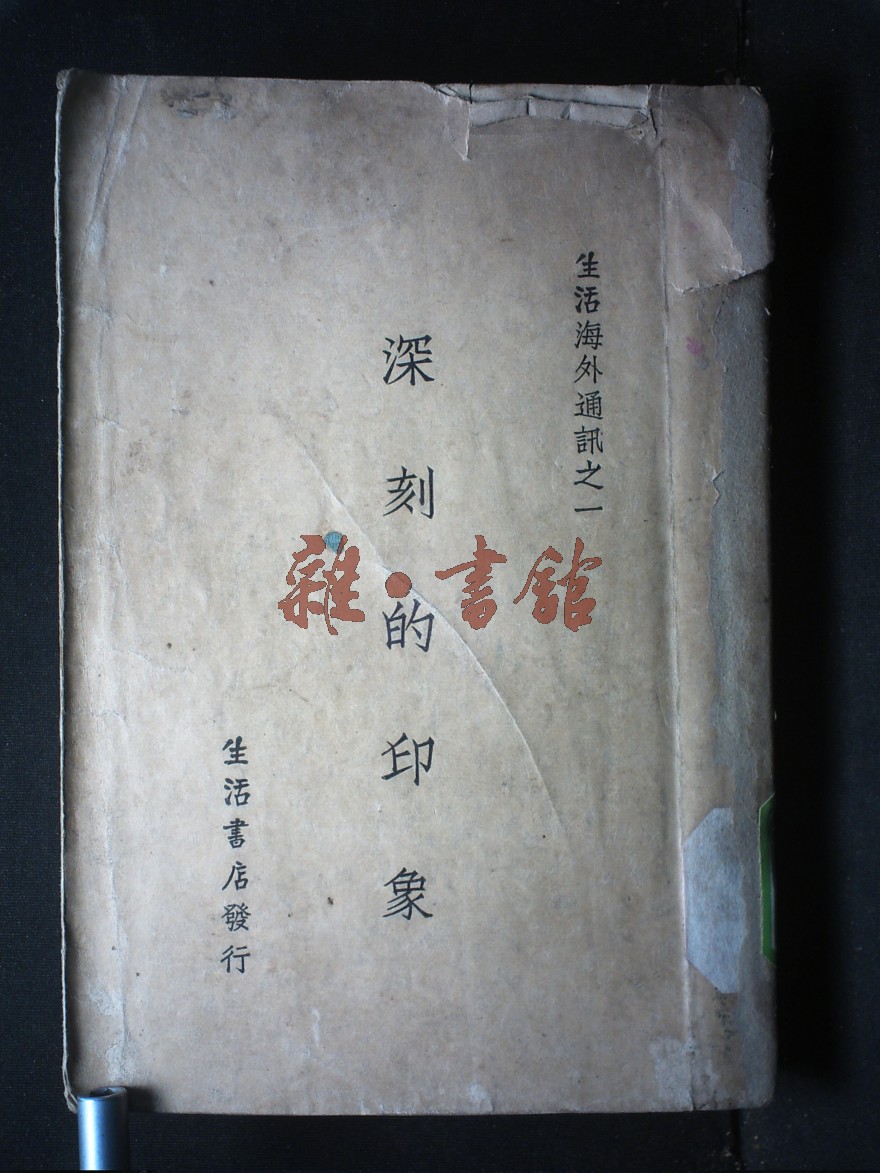 生活海外通訊之一
深刻的印象
生活書店發行
雜·書館